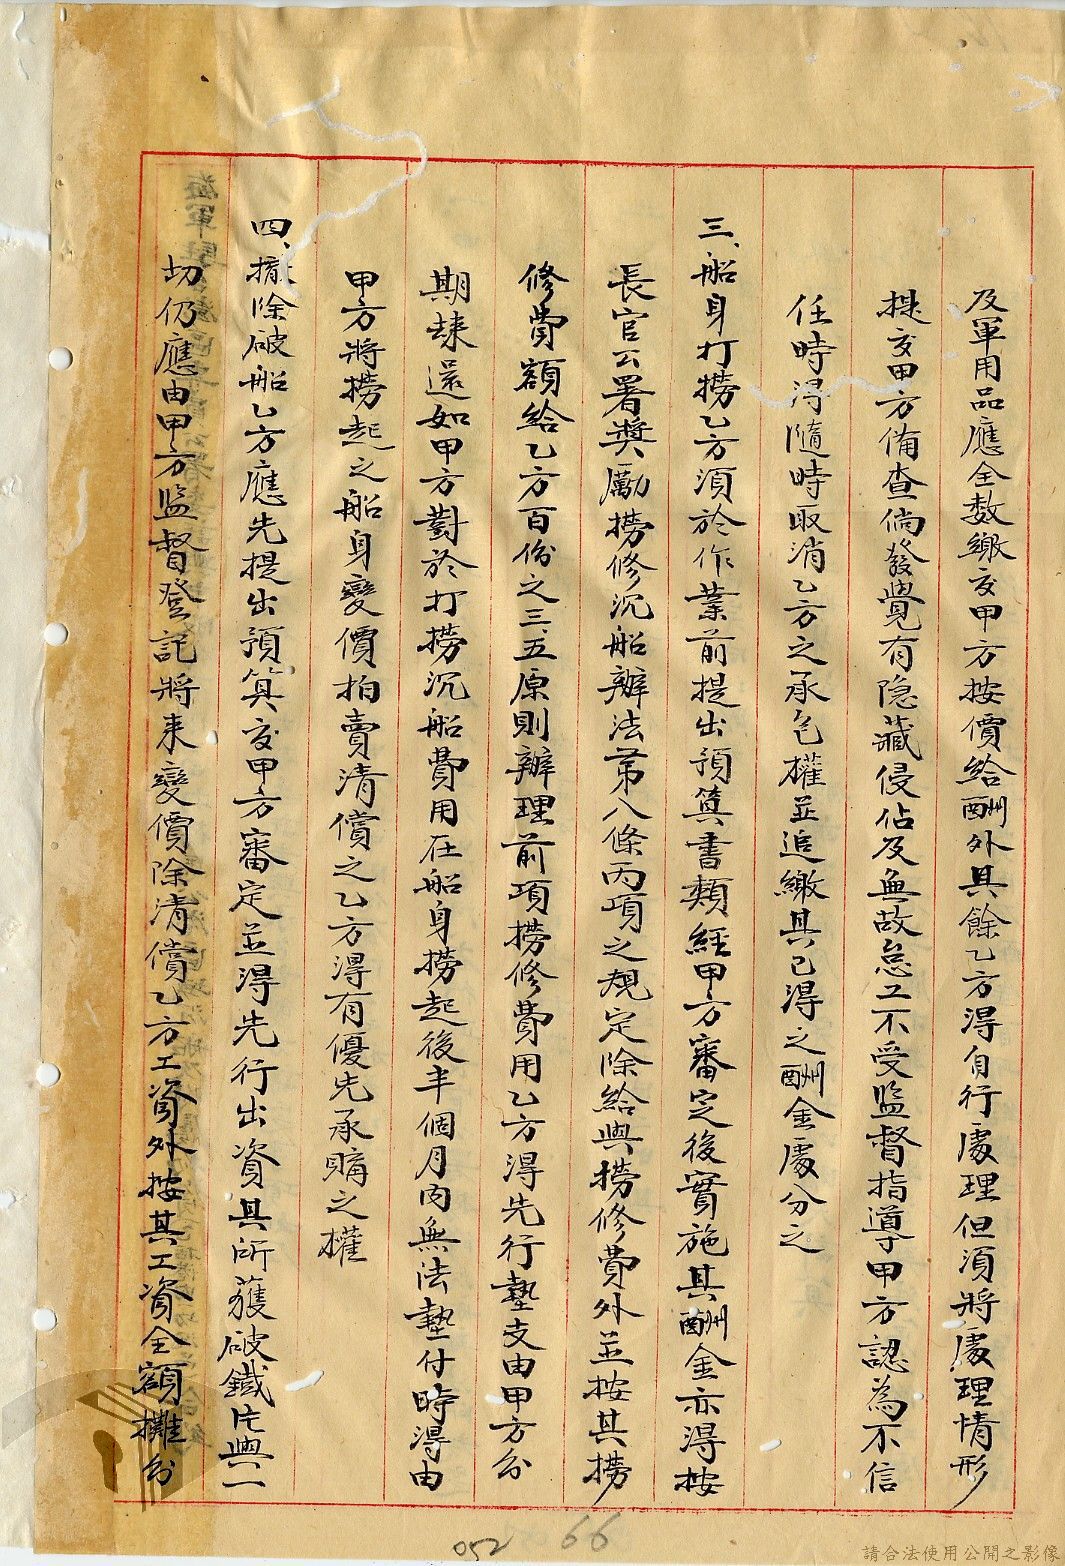 及軍用品應全数繳交甲方按價給酬外其餘乙方得自行處理但須將處理情形
提交甲方備查倘發覺有隐藏侵佔及無故怠工不受監督指導甲方認為不信
任時得隨時取消乙方之承包權並追繳其已得之酬金處分之
三、船身打撈乙方須於作業前提出預算書類經甲方審定後實施其酬金亦得按
長官公署獎勵撈修沉船辦法第八條丙項之規定除給與撈修費外並按其撈
修費額給乙方百份之三.五原則辦理前項撈修費用乙方得先行墊支由甲方分
期
還如甲方對於打撈沉船費用在船身撈起後半個月內無法墊付時得由
甲方將撈起之船身變價拍賣清償之乙方得有優先承購之權
四、撤除破船乙方應先提出預算交甲方審定並得先行出資其所獲破鐵片與一
切仍應由甲方監督登記將来變價除清償乙方工資外按其工資全額攤分
052
66
請合法使用公開之影像